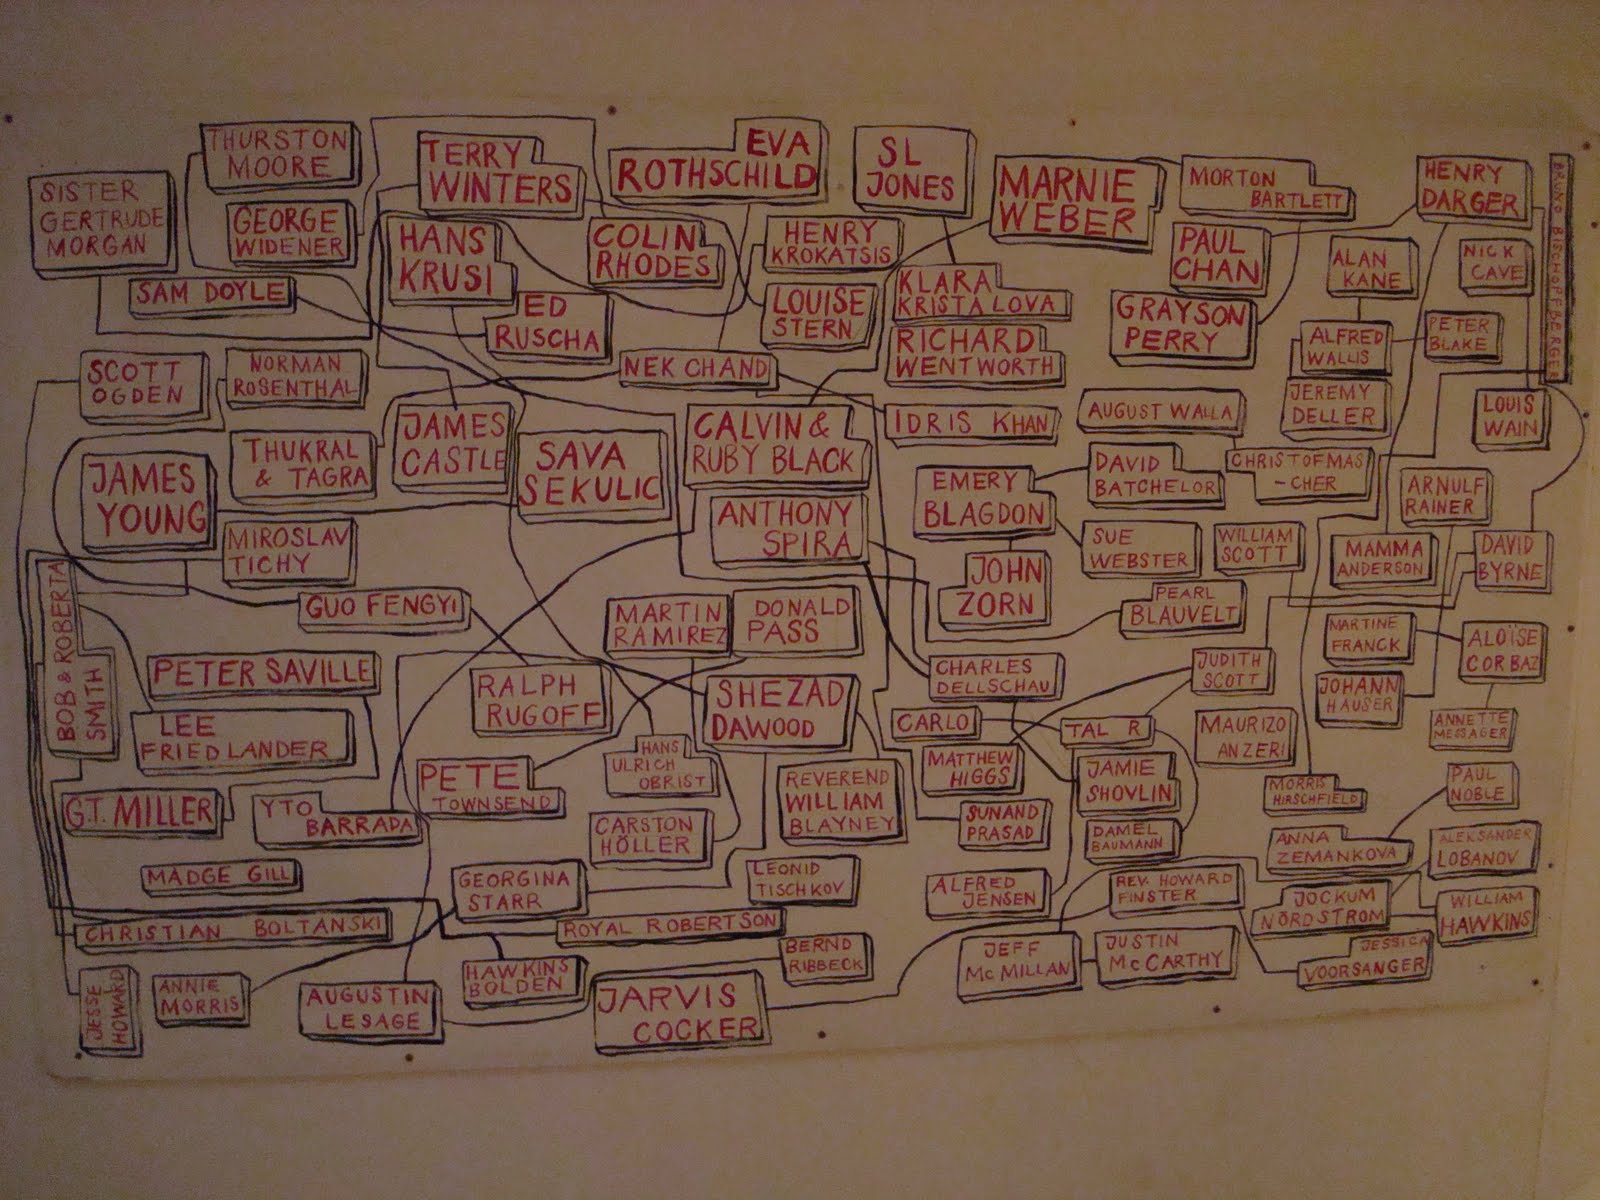 THURSTON
MOORE
TERRY
WINTERS
EVA
ROTHSCHILD
SL
JONES
MARNIE
WEBER
MORTON
BARTLETT
HENRY
DARGER
BRUNO BISCHOFFBERGER
SISTER
GERTRUDE
MORGAN
GEORGE
WIDENER
HANS
KRUSI
COLIN
RHODES
HENRY
KROKATSIS
KLARA
KRISTALOVA
PAUL
CHAN
ALAN
KANE
NICK
CAVE
SAM DOYLE
ED
RUSCHA
LOUISE
STERN
RICHARD
WENTWORTH
GRAYSON
PERRY
ALFRED
WALLIS
PETER
BLAKE
SCOTT
OGDEN
NORMAN
ROSENTHAL
NEK CHAND
JEREMY
DELLER
LOUIS
WAIN
THUKRAL
& TAGRA
JAMES
CASTLE
SAVA
SEKULIC
CALVIN &
RUBY BLACK
IDRIS KHAN
AUGUST WALLA
JAMES
YOUNG
EMERY
BLAGDON
DAVID
BATCHELOR
CHRISTOFMAS
-CHER
ARNULF
RAINER
MIROSLAV
TICHY
ANTHONY
SPIRA
SUE
WEBSTER
WILLIAM
SCOTT
MAMMA
ANDERSON
DAVID
BYRNE
BOB & ROBERTA
SMITH
GUO FENGYI
MARTIN
RAMIREZ
DONALD
PASS
JOHN
ZORN
PEARL
BLAUVELT
MARTINE
FRANCK
ALOÏSE
CORBAZ
PETER SAVILLE
RALPH
RUGOFF
SHEZAD
DAWOOD
CHARLES
DELLSCHAU
JUDITH
SCOTT
JOHANN
HAUSER
LEE
FRIEDLANDER
CARLO
TAL R
MAURIZO
ANZERI
ANNETTE
MESSAGER
G.T. MILLER
YTO
BARRADA
PETE
TOWNSEND
HANS
ULRICH
OBRIST
REVEREND
WILLIAM
BLAYNEY
MATTHEW
HIGGS
JAMIE
SHOVLIN
MORRIS
HIRSCHFIELD
PAUL
NOBLE
CARSTON
HÖLLER
SUNAND
PRASAD
DAMEL
BAUMANN
ANNA
ZEMANKOVA
ALEKSANDER
LOBANOV
MADGE GILL
GEORGINA
STARR
LEONID
TISCHKOV
ALFRED
JENSEN
REV. HOWARD
FINSTER
JOCKUM
NÖRDSTROM
WILLIAM
HAWKINS
CHRISTIAN BOLTANSKI
ROYAL ROBERTSON
BERND
RIBBECK
JEFF
McMILLAN
JUSTIN
McCARTHY
JESSICA
VOORSANGER
JESSE
HOWARD
ANNIE
MORRIS
AUGUSTIN
LESAGE
HAWKINS
BOLDEN
JARVIS
COCKER